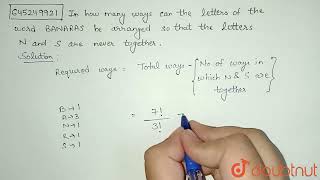 645249921 In how many ways can the letters of the
word BANARAS be arranged so that the letters
N and S are never together.
Solution:
Required ways = Total ways - { No of ways in
which N & S are
together }
B → 1
A → 3
N → 1
R → 1
S → 1
= 7! / 3! -
doubtnut